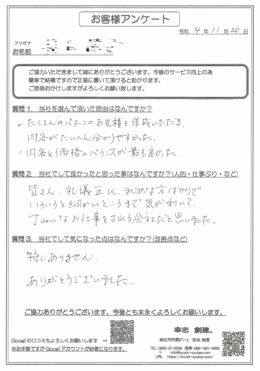 お客様アンケート
令和 4 年 11 月 20 日
フリガナ
お名前
ご協力いただきまして誠にありがとうございます。今後のサービス向上の為
簡単で結構ですので正直に書いて頂けると助かります。
ご面倒おかけしますがよろしくお願い致します。
質問1. 当社を選んで頂いた理由はなんですか?
・たくさんのパターンのお見積を作成いただき、
内容がたいへん分かりやすかった。
・内容と価格のバランスが最も良かった。
質問2. 当社でして良かったと思った事はなんですか?(人柄・仕事ぶり・など)
皆さん、礼儀正しく、まじめな方ばかりで
いろいろと細かいところまで気が利いて、
丁ねいなお仕事をされる会社だと思いました。
質問3. 当社でして気になった点はなんですか?(改善点など)
特にありません。
ありがとうございました。
ご協力ありがとうございます。今後とも末永くよろしくお願いします。
Googleの口コミもよろしくお願いします ⇒
※お手数ですがGoogleアカウントが必要になります。
幸志 創建。